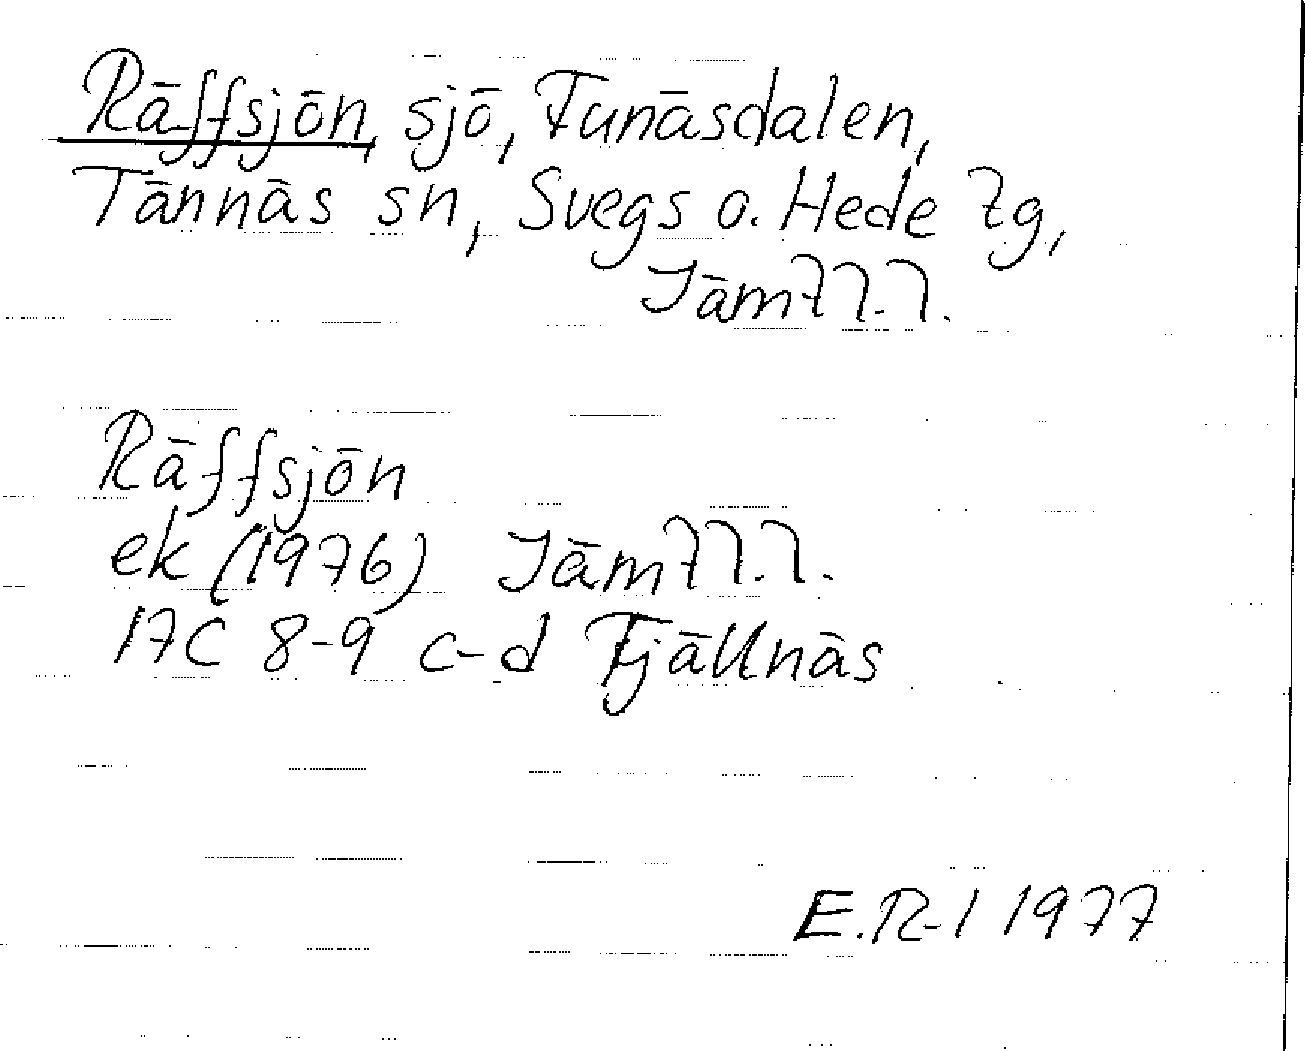 Räffsjön, sjö, Funäsdalen,
Tännäs sn, Svegs o. Hede tg,
Jämtl.l.
Räffsjön
ek (1976) Jämtl.l.
17C 8-9 c-d Fjällnäs
E.R-l 1977